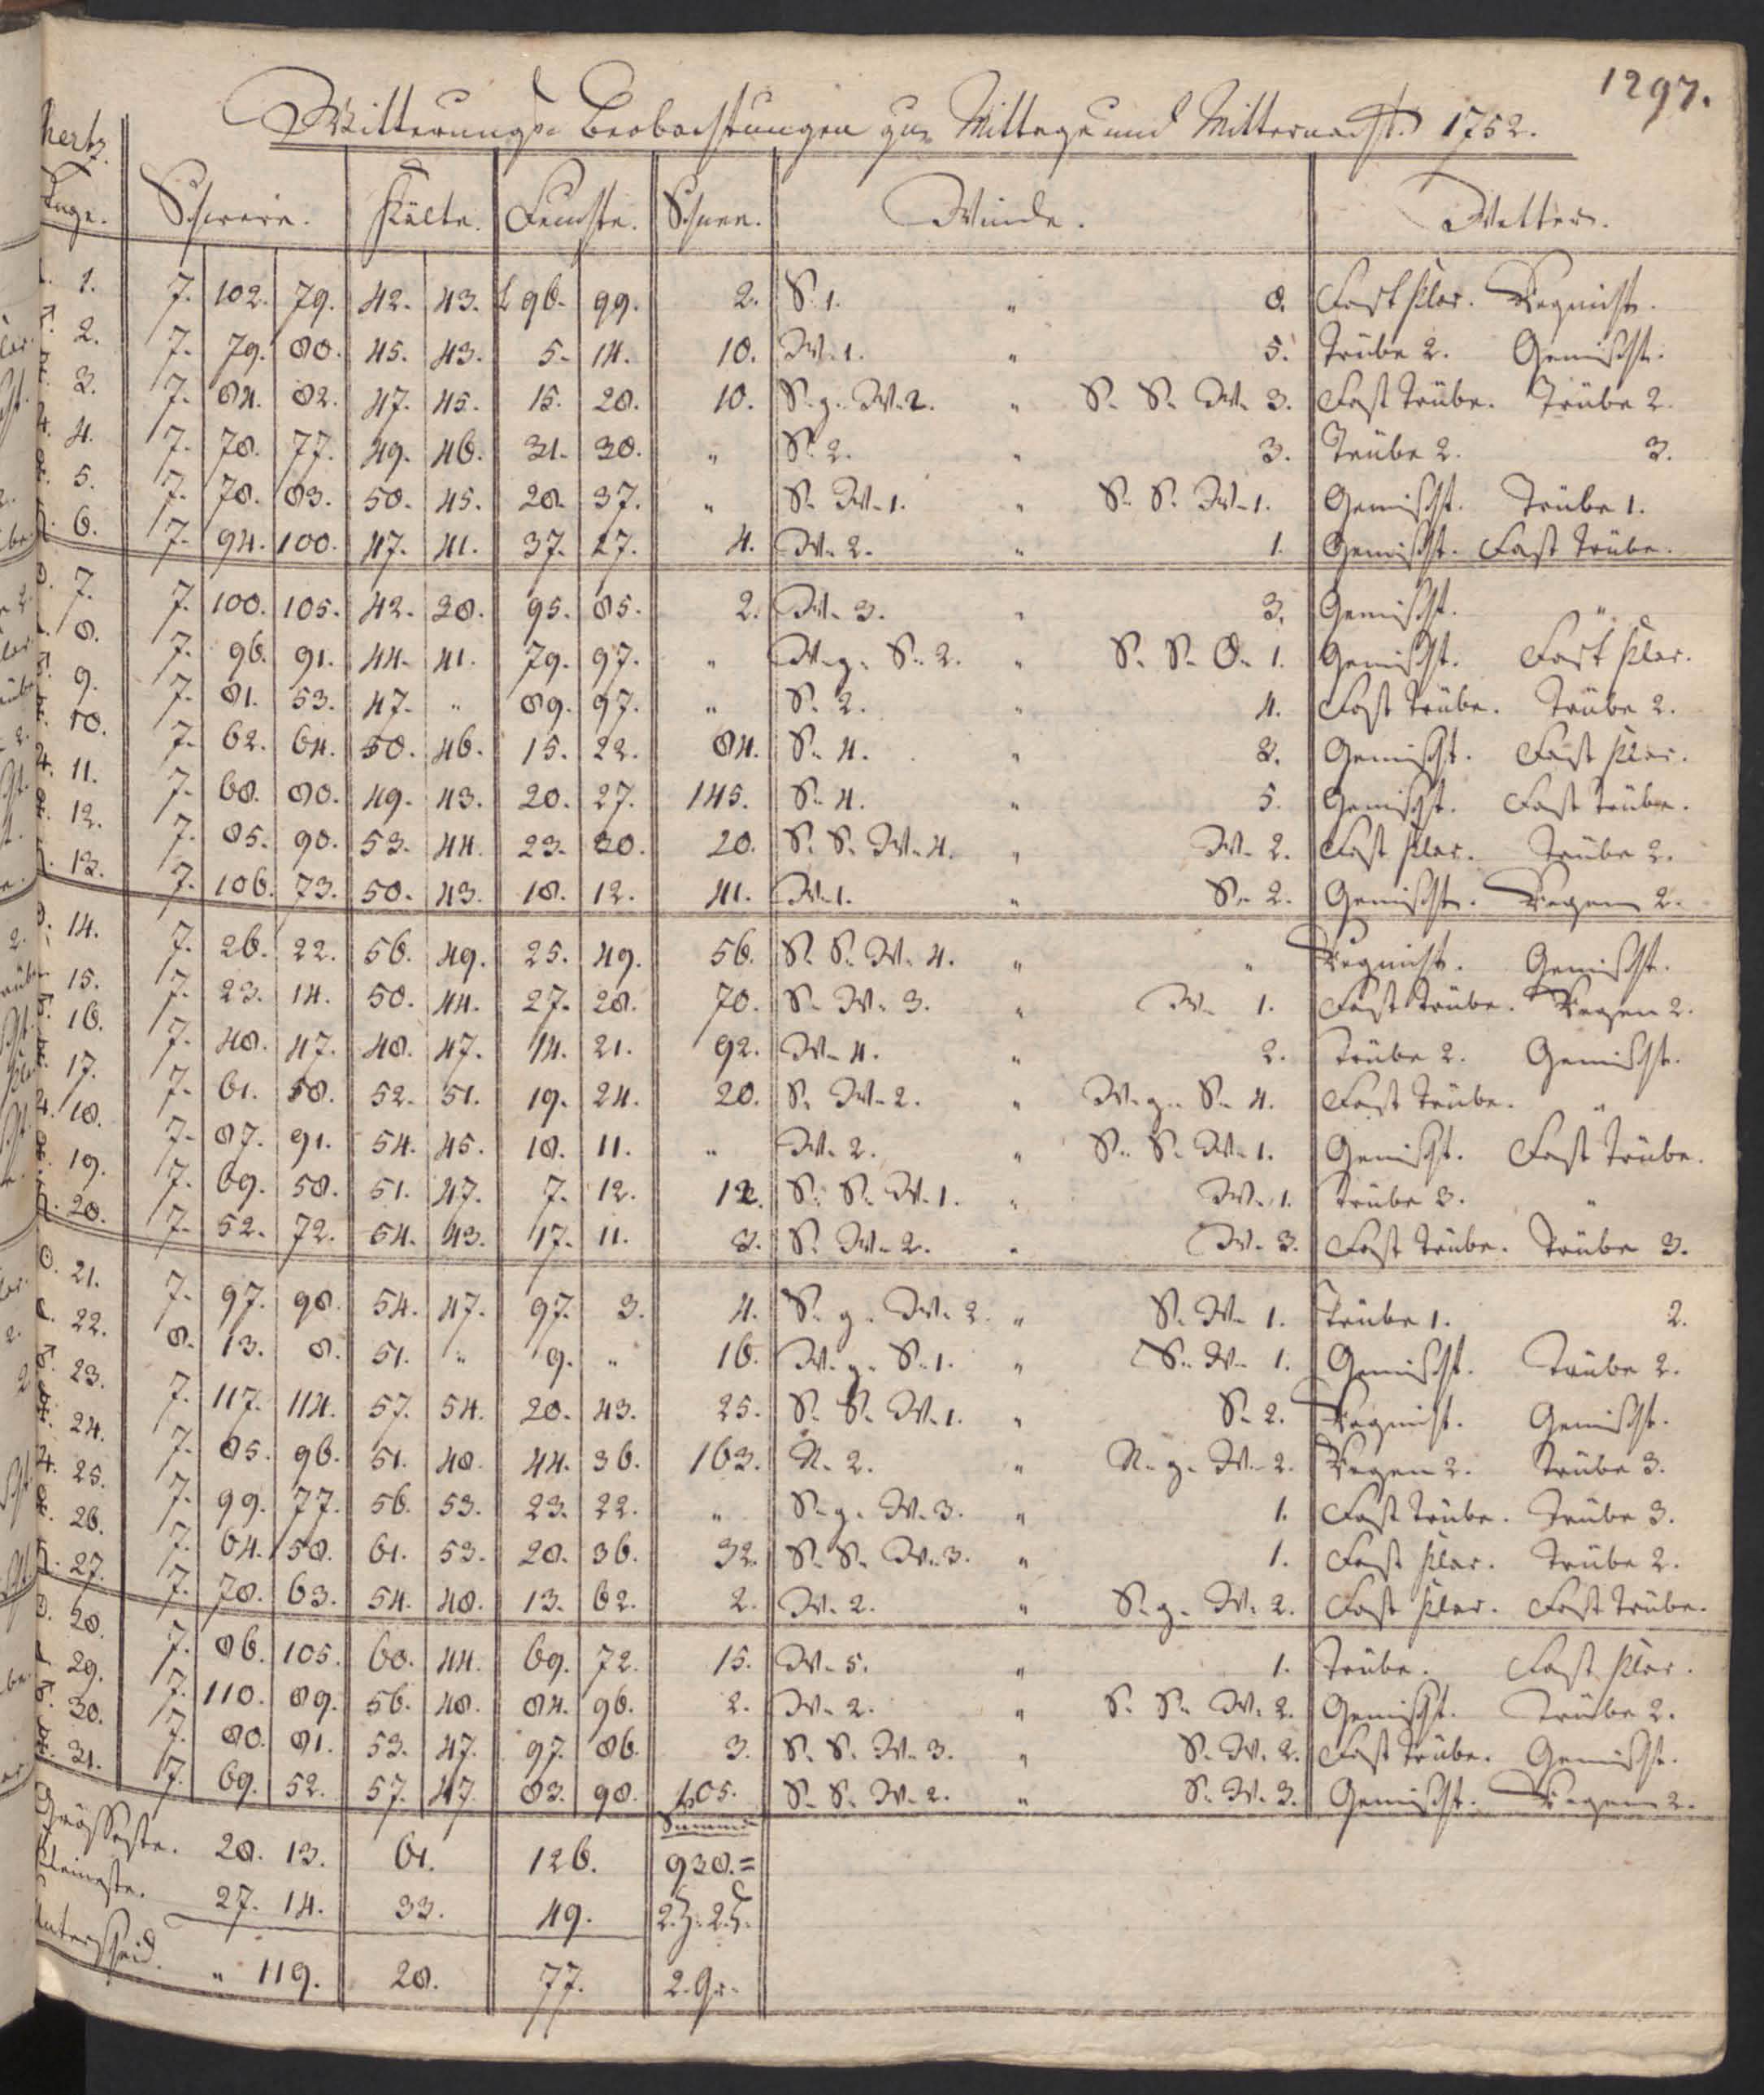 1297.
Witterungs- Beobachtungen zu Mittage und Mitternacht. 1752.
Mertz.
Tage. Schwere. Kälte. Feuchte. Schnee. Winde. Wetter.
1. 7. 102. 79. 42. 43. 96. 99. 2. S. 1. " 0. Fast klar. Regnicht.
2. 7. 79. 80. 45. 43. 5. 14. 10. W. 1. " 5. Trübe 2. Gemischt.
3. 7. 84. 82. 47. 45. 15. 28. 10. S. g. W. 2. " S. S. W. 3. Fast trübe. Trübe 2.
4. 7. 78. 77. 49. 46. 31. 30. " S. 2. " 3. Trübe 2. 3.
5. 7. 78. 83. 50. 45. 28. 37. " S. W. 1. " S. S. W. 1. Gemischt. Trübe 1.
6. 7. 94. 100. 47. 41. 37. 27. 4. W. 2. " 1. Gemischt. Fast trübe.
7. 7. 100. 105. 42. 38. 95. 85. 2. W. 3. " 3. Gemischt. "
8. 7. 96. 91. 44. 41. 79. 97. " W. g. S. 2. " S. S. O. 1. Gemischt. Fast klar.
9. 7. 81. 53. 47. " 89. 97. " S. 2. " 4. Fast trübe. Trübe 2.
10. 7. 62. 64. 50. 46. 15. 22. 84. S. 4. " 2. Gemischt. Fast klar.
11. 7. 68. 80. 49. 43. 20. 27. 145. S. 4. " 5. Gemischt. Fast trübe.
12. 7. 85. 90. 53. 44. 23. 20. 20. S. S. W. 4. " W. 2. Fast klar. Trübe 2.
13. 7. 106. 73. 50. 43. 18. 12. 41. W. 1. " S. 2. Gemischt. Regen 2.
14. 7. 26. 22. 56. 49. 25. 49. 56. S. S. W. 4. " " Regnicht. Gemischt.
15. 7. 23. 14. 50. 44. 27. 28. 70. S. W. 3. " W. 1. Fast trübe. Regen 2.
16. 7. 48. 47. 48. 47. 14. 21. 92. W. 4. " 2. Trübe 2. Gemischt.
17. 7. 61. 58. 52. 51. 19. 24. 20. S. W. 2. " W. g. S. 4. Fast trübe. "
18. 7. 87. 91. 54. 45. 18. 11. " W. 2. " S. S. W. 1. Gemischt. Fast trübe.
19. 7. 69. 58. 51. 47. 7. 12. 12. S. S. W. 1. " W. 1. Trübe 3. "
20. 7. 52. 72. 54. 43. 17. 11. 3. S. W. 2. " W. 3. Fast trübe. Trübe 3.
21. 7. 97. 98. 54. 47. 97. 3. 4. S. g. W. 2. " S. W. 1. Trübe 1. 2.
22. 8. 13. 8. 51. " 9. " 16. W. g. S. 1. " S. W. 1. Gemischt. Trübe 2.
23. 7. 117. 114. 57. 54. 20. 43. 25. S. S. W. 1. " S. 2. Regnicht. Gemischt.
24. 7. 85. 96. 51. 48. 44. 36. 163. N. 2. " N. g. W. 2. Regen 2. Trübe 3.
25. 7. 99. 77. 56. 53. 23. 22. " S. g. W. 3. " 1. Fast trübe. Trübe 3.
26. 7. 64. 58. 61. 53. 28. 36. 32. S. S. W. 3. " 1. Fast klar. Trübe 2.
27. 7. 78. 63. 54. 48. 13. 62. 2. W. 2. " S. g. W. 2. Fast klar. Fast trübe.
28. 7. 86. 105. 60. 44. 69. 72. 15. W. 5. " 1. Trübe. Fast klar.
29. 7. 110. 89. 56. 48. 84. 96. 2. W. 2. " S. S. W. 2. Gemischt. Trübe 2.
30. 7. 80. 81. 53. 47. 97. 86. 3. S. S. W. 3. " S. W. 2. Fast trübe. Gemischt.
31. 7. 69. 52. 57. 47. 83. 98. 105. S. S. W. 2. " S. W. 3. Gemischt. Regen 2.
Summa
Grösseste. 28. 13. 61. 126. 938.=
Kleineste. 27. 14. 33. 49. 2. Z. 2. L.
Unterscheid. " 119. 28. 77. 2. Gr.